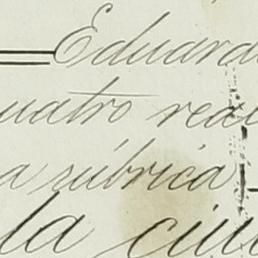 Eduard
uatro rea
a rúbrica
la ciu